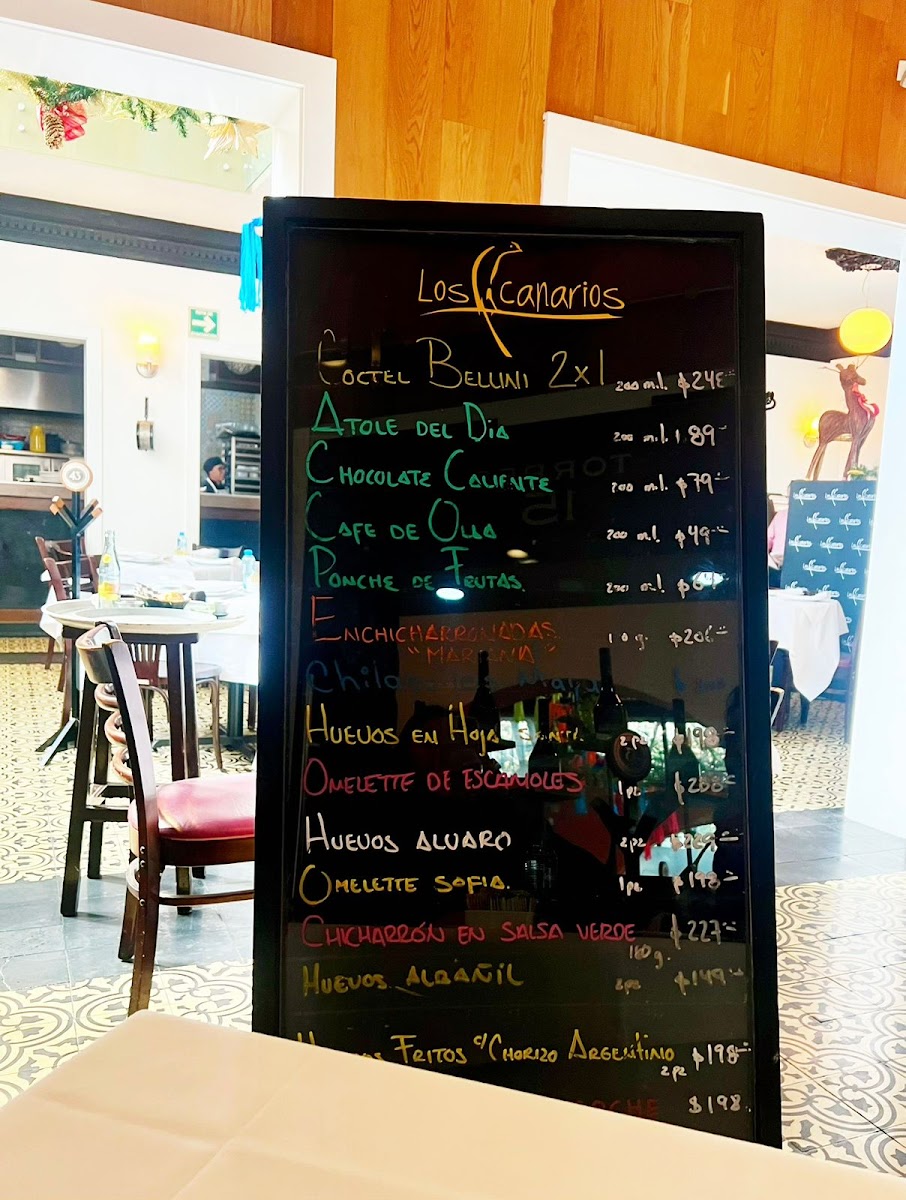 Los Canarios
Coctel Bellini 2x1 200 ml. $248
Atole del Dia 200 ml. 89
Chocolate Caliente 200 ml. $79
Cafe de Olla 200 ml. $49
Ponche de Frutas. 200 ml
Enchicharronadas $206
"Mariana"
Huevos en Hoja Santa 2pz $198
Omelette de Escamoles 1pz
Huevos Alvaro 2pz
Omelette Sofia. 1pz $198
Chicharrón en Salsa Verde $227
180 g.
Huevos Albañil 2pz $149
Fritos c/Chorizo Argentino $198
2pz
$198
45